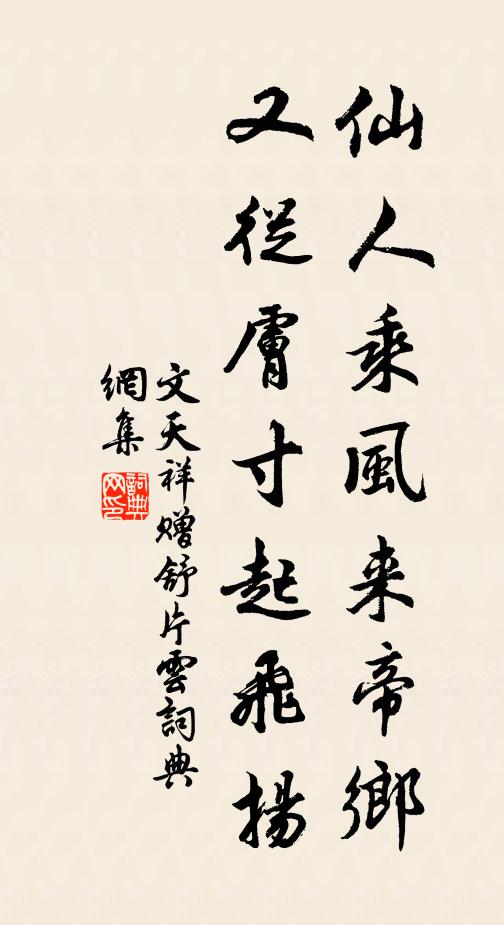 仙人乘風来帝鄉
又從膚寸起飛揚
文天祥贈舒片雲詞典
網集
詞典
网印